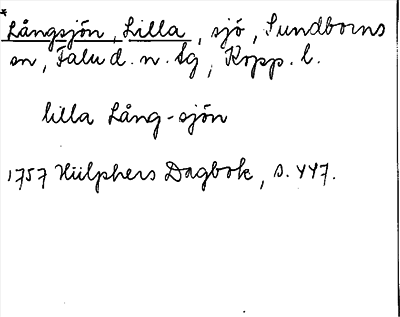 *
Långsjön, Lilla, sjö, Sundborns
sn, Falu d. n. tg, Kopp. l.
lilla Lång-sjön
1757 Hülphers Dagbok, s. 447.